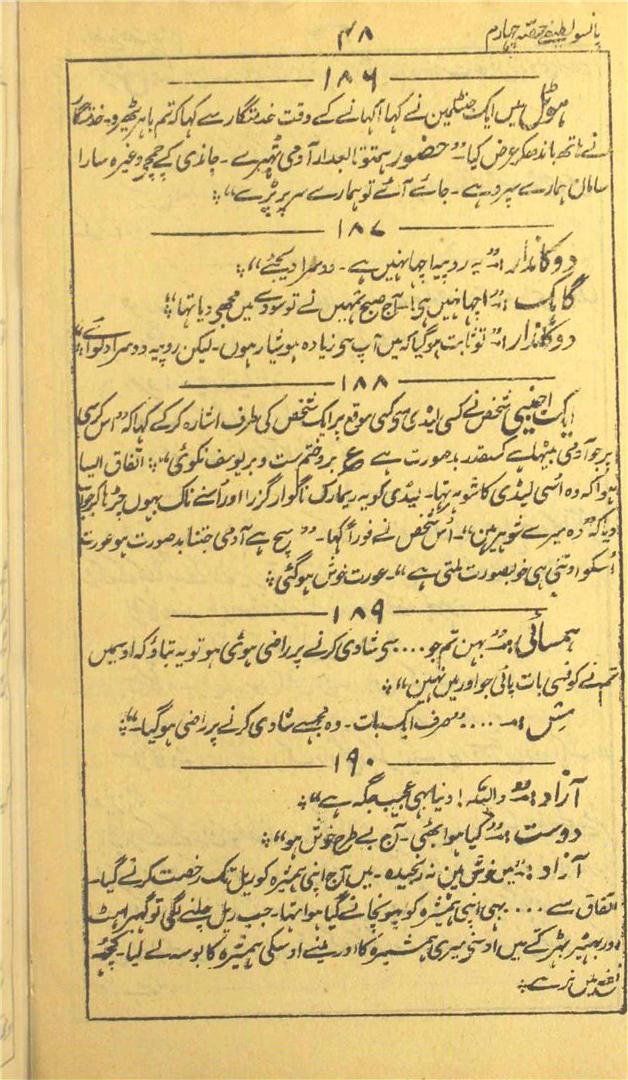 پانسو لطیفے حصہ چہارم
۴۸
۱۸۶
ہوٹل میں ایک جنٹلمین نے کہا کہانے کے وقت خدمتگار سے کہا کہ تم باہر ٹھیرو۔ خدمتگار
نے ہاتھ باندھکر عرض کیا۔ "حضور ہم تو تابعدار آدمی ٹہرے۔ چاندی کے چمچے وغیرہ سارا
سامان ہمارے سپرد ہے۔ جائے آئے تو ہمارے سر پر پڑے"
۱۸۷
دوکاندار:۔ "یہ روپیہ اچہا نہیں ہے۔ دوسرا دیجئے"
گاہک:۔ "اچہا نہیں ہی!۔ آج صبح تمہیں نے تو سودے میں مجھے دیا تہا"
دوکاندار:۔ "تو ثابت ہوگیا کہ میں آپ سے زیادہ ہوشیار ہوں۔ لیکن روپیہ دوسرا دلوائے"
۱۸۸
ایک اجنبی شخص نے کسی لیڈی سے کسی موقع پر ایک شخص کی طرف اشارہ کر کے کہا کہ "اس کرسی
پر جو آدمی بیٹہا ہے کسقدر بدصورت ہے ع بروختم ست و بر یوسف نکوئی" اتفاق ایسا
ہوا کہ وہ اسی لیڈی کا شوہر تہا۔ لیڈی کو یہ ریمارک ناگوار گزرا اور اُسنے ناک بہوں چڑہا کر جواب
دیا کہ "وہ میرے شوہر ہین"۔ اُس شخص نے فوراً کہا۔ "سچ ہے آدمی جتنا بدصورت ہو عورت
اُسکو اوتنی ہی خوبصورت ملتی ہے"۔ عورت خوش ہوگئی
۱۸۹
ہمسائی:۔ "بہن تم جو .... سے شادی کرنے پر راضی ہوئی ہو تو یہ بتاؤ کہ اوسمیں
تم نے کونسی بات پائی جو اور میں نہین"
مِس:۔ .... "صرف ایک بات۔ وہ مجہسے شادی کرنے پر راضی ہوگیا۔"
۱۹۰
آزاد:۔ "واللہ! دنیا بہی عجیب جگہ ہے"
دوست:۔ "کیا ہوا بھئی۔ آج بے طرح خوش ہو"
آزاد:۔ "میں خوش ہین نہ رنجیدہ۔ میں آج اپنی ہمشیرہ کو ریل تک رخصت کرنے گیا۔
اتفاق سے .... بہی اپنی ہمشیرہ کو پہونچانے گیا ہوا تہا۔ جب ریل چلنے لگی تو گہبراہٹ
اور بہیڑ بہڑکے میں اوسنے میری ہمشیرہ کا اور مینے اوسکی ہمشیرہ کا بوسہ لے لیا۔ کچہہ
نہ رہے